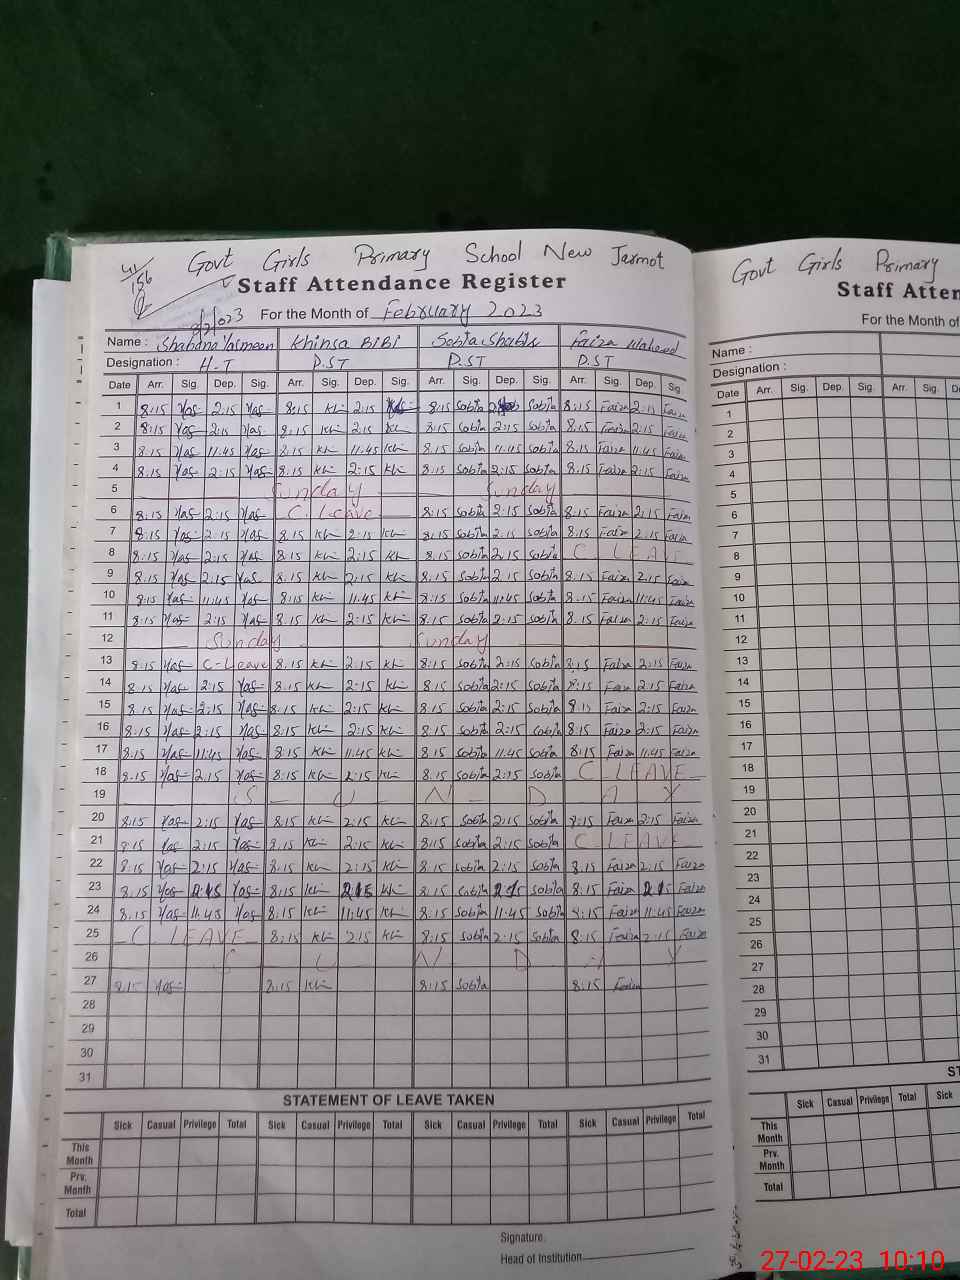 Govt Girls Primary School New Jarmot
Staff Attendance Register
For the Month of February 2023
Name : Shabana Yasmeen Khinsa BiBi Sobia Shabir Faiza Waheed
Designation : H.T P.ST P.ST P.ST
Date Arr. Sig. Dep. Sig. Arr. Sig. Dep. Sig. Arr. Sig. Dep. Sig. Arr. Sig. Dep. Sig.
1 8:15 Yas 2:15 Yas 8:15 Kh 2:15 8:15 Sobia Sobia 8:15 Faiza 2:15 Faiza
2 8:15 Yas 2:15 Yas 8:15 Kh 2:15 Kh 8:15 Sobia 2:15 Sobia 8:15 Faiza 2:15 Faiza
3 8:15 Yas 11:45 Yas 8:15 Kh 11:45 Kh 8:15 Sobia 11:45 Sobia 8:15 Faiza 11:45 Faiza
4 8:15 Yas 2:15 Yas 8:15 Kh 2:15 Kh 8:15 Sobia 2:15 Sobia 8:15 Faiza 2:15 Faiza
5 Sunday Sunday
6 8:15 Yas 2:15 Yas C. Leave 8:15 Sobia 2:15 Sobia 8:15 Faiza 2:15 Faiza
7 8:15 Yas 2:15 Yas 8:15 Kh 2:15 Kh 8:15 Sobia 2:15 Sobia 8:15 Faiza 2:15 Faiza
8 8:15 Yas 2:15 Yas 8:15 Kh 2:15 Kh 8:15 Sobia 2:15 Sobia C LEAVE
9 8:15 Yas 2:15 Yas 8:15 Kh 2:15 Kh 8:15 Sobia 2:15 Sobia 8:15 Faiza 2:15 Faiza
10 8:15 Yas 11:45 Yas 8:15 Kh 11:45 Kh 8:15 Sobia 11:45 Sobia 8:15 Faiza 11:45 Faiza
11 8:15 Yas 2:15 Yas 8:15 Kh 2:15 Kh 8:15 Sobia 2:15 Sobia 8:15 Faiza 2:15 Faiza
12 Sunday Sunday
13 8:15 Yas C-Leave 8:15 Kh 2:15 Kh 8:15 Sobia 2:15 Sobia 8:15 Faiza 2:15 Faiza
14 8:15 Yas 2:15 Yas 8:15 Kh 2:15 Kh 8:15 Sobia 2:15 Sobia 8:15 Faiza 2:15 Faiza
15 8:15 Yas 2:15 Yas 8:15 Kh 2:15 Kh 8:15 Sobia 2:15 Sobia 8:15 Faiza 2:15 Faiza
16 8:15 Yas 2:15 Yas 8:15 Kh 2:15 Kh 8:15 Sobia 2:15 Sobia 8:15 Faiza 2:15 Faiza
17 8:15 Yas 11:45 Yas 8:15 Kh 11:45 Kh 8:15 Sobia 11:45 Sobia 8:15 Faiza 11:45 Faiza
18 8:15 Yas 2:15 Yas 8:15 Kh 2:15 Kh 8:15 Sobia 2:15 Sobia C LEAVE
19 S U N D A Y
20 8:15 Yas 2:15 Yas 8:15 Kh 2:15 Kh 8:15 Sobia 2:15 Sobia 8:15 Faiza 2:15 Faiza
21 8:15 Yas 2:15 Yas 8:15 Kh 2:15 Kh 8:15 Sobia 2:15 Sobia C LEAVE
22 8:15 Yas 2:15 Yas 8:15 Kh 2:15 Kh 8:15 Sobia 2:15 Sobia 8:15 Faiza 2:15 Faiza
23 8:15 Yas 2:15 Yas 8:15 Kh 2:15 Kh 8:15 Sobia 2:15 Sobia 8:15 Faiza 2:15 Faiza
24 8:15 Yas 11:45 Yas 8:15 Kh 11:45 Kh 8:15 Sobia 11:45 Sobia 8:15 Faiza 11:45 Faiza
25 C. LEAVE 8:15 Kh 2:15 Kh 8:15 Sobia 2:15 Sobia 8:15 Faiza 2:15 Faiza
26 S U N D A Y
27 8:15 Yas 8:15 Kh 8:15 Sobia 8:15 Faiza
28
29
30
31
STATEMENT OF LEAVE TAKEN
Sick Casual Privilege Total Sick Casual Privilege Total Sick Casual Privilege Total Sick Casual Privilege Total
This Month
Prv. Month
Total
Signature.
Head of Institution
Govt Girls Primary
Staff Atten
For the Month of
Name :
Designation :
Date Arr. Sig. Dep. Sig. Arr. Sig.
1
2
3
4
5
6
7
8
9
10
11
12
13
14
15
16
17
18
19
20
21
22
23
24
25
26
27
28
29
30
31
ST
Sick Casual Privilege Total Sick
This Month
Prv. Month
Total
27-02-23 10:10